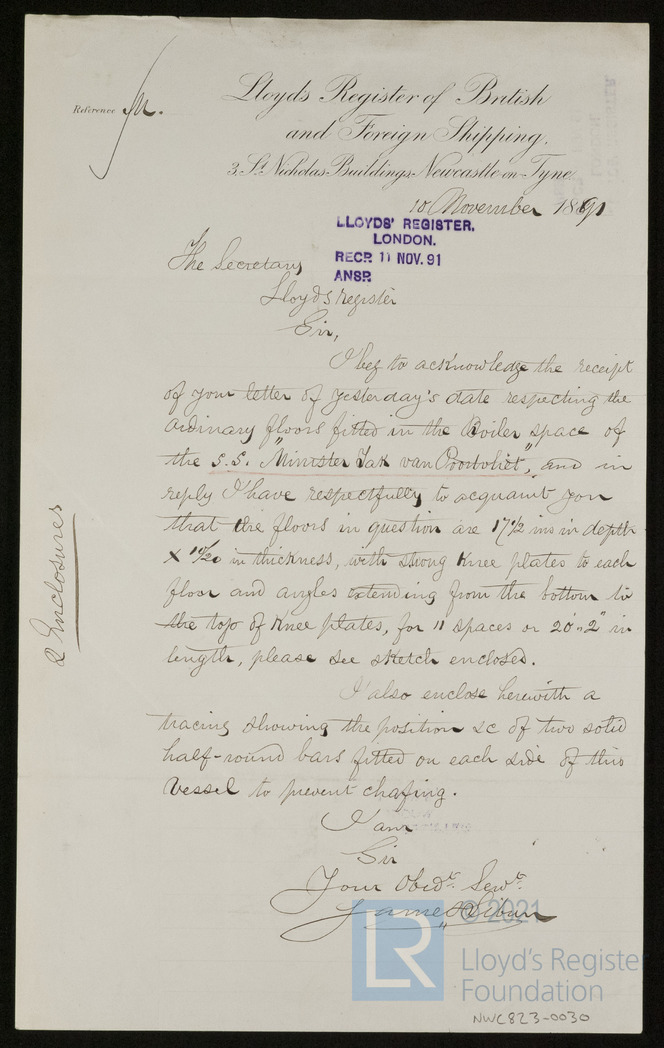 Reference JM.
Lloyds Register of British
and Foreign Shipping.
3, St. Nicholas Buildings Newcastle-on-Tyne
10 November 1891
LLOYDS' REGISTER,
LONDON.
RECD. 11 NOV. 91
ANSD.
The Secretary
Lloyds register
Sir,
I beg to acknowledge the receipt
of your letter of yesterday's date respecting the
ordinary floors fitted in the Boiler space of
the S.S. "Minister Tak van Poortvliet", and in
reply I have respectfully to acquaint you
that the floors in question are 17 1/2 ins in depth
x 10/20 in thickness, with strong Knee plates to each
floor and angles extending from the bottom to
the top of Knee plates, for 11 spaces or 20'-2" in
length, please see sketch enclosed.
2 Enclosures
I also enclose herewith a
tracing showing the position &c of two solid
half-round bars fitted on each side of this
Vessel to prevent chafing.
I am
Sir
Your Obedt. Servt.
James
© 2021
LR
Lloyd's Register
Foundation
NWC823-0030